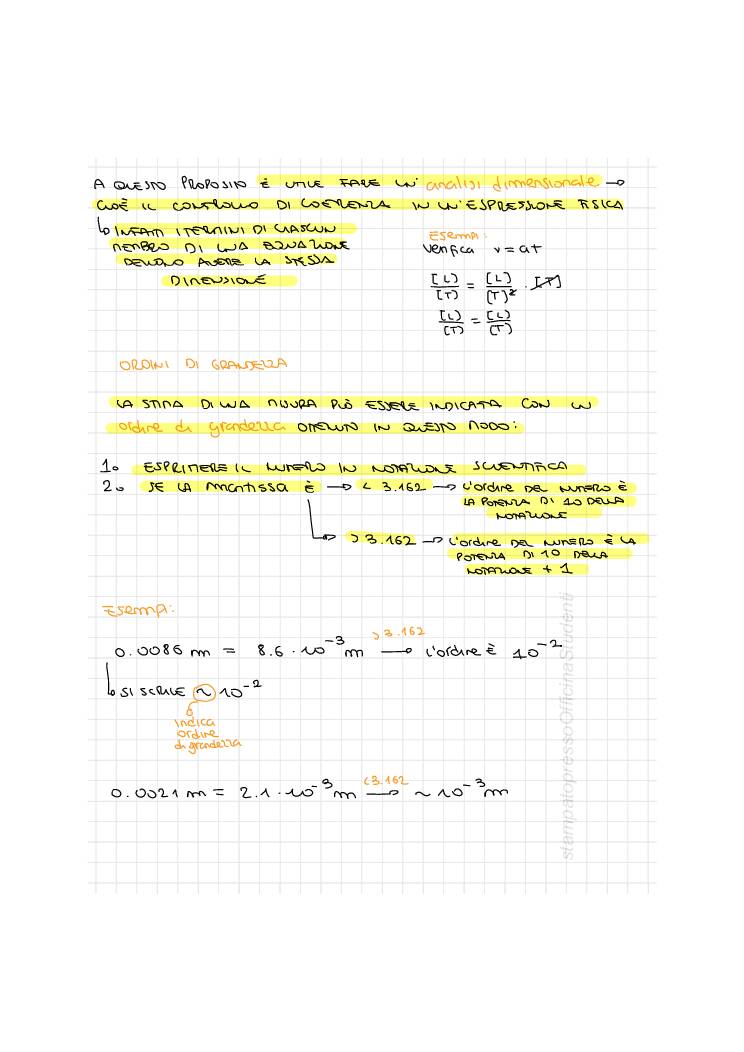 A QUESTO PROPOSITO È UTILE FARE UN' analisi dimensionale →
CIOÈ IL CONTROLLO DI COERENZA IN UN'ESPRESSIONE FISICA
↳ INFATTI I TERMINI DI CIASCUN
MEMBRO DI UNA EQUAZIONE
DEVONO AVERE LA STESSA
DIMENSIONE
Esempi:
verifica v = at
[L]/[T] = [L]/[T]² · [T]
[L]/[T] = [L]/[T]
ORDINI DI GRANDEZZA
LA STIMA DI UNA MISURA PUÒ ESSERE INDICATA CON UN
ordine di grandezza OTTENUTO IN QUESTO MODO:
1. ESPRIMERE IL NUMERO IN NOTAZIONE SCIENTIFICA
2. SE LA mantissa È → < 3.162 → L'ordine DEL NUMERO È
LA POTENZA DI 10 DELLA
NOTAZIONE
↳ > 3.162 → L'ordine DEL NUMERO È LA
POTENZA DI 10 DELLA
NOTAZIONE + 1
Esempi:
0.0086 m = 8.6 · 10⁻³ m → > 3.162 L'ordine È 10⁻²
↳ SI SCRIVE ~ 10⁻²
indica
ordine
di grandezza
0.0021 m = 2.1 · 10⁻³ m → < 3.162 ~ 10⁻³ m
stampatopressoOfficinaStudenti